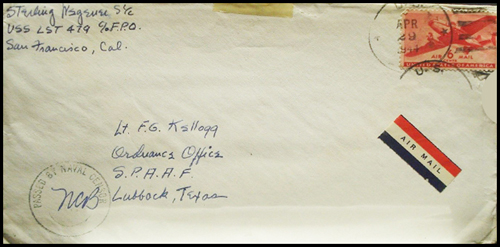 Sterling
USS LST 479 % F.P.O.
San Francisco, Cal.
U.S.
APR
29
6¢
AIR MAIL
UNITED STATES OF AMERICA
U.S.
Lt. F.G. Kellogg
Ordnance Office
S.P.A.A.F.
Lubbock, Texas
AIR MAIL
PASSED BY NAVAL CENSOR
NCB